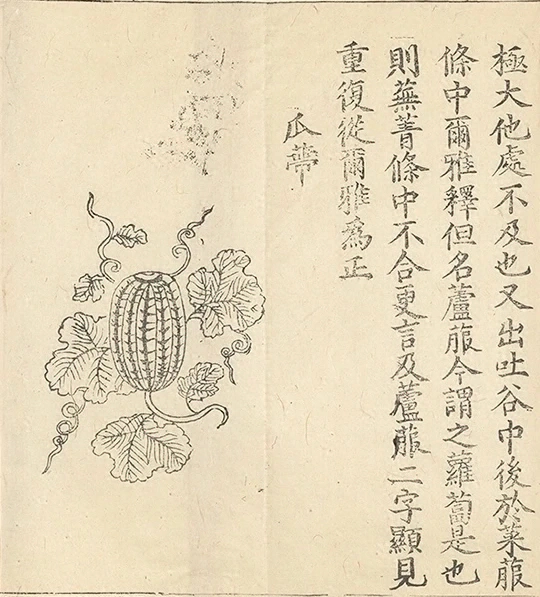 極大他處不及也又出吐谷中後於萊菔
條中爾雅釋但名蘆菔今謂之蘿蔔是也
則蕪菁條中不合更言及蘆菔二字顯見
重復從爾雅為正
瓜蔕